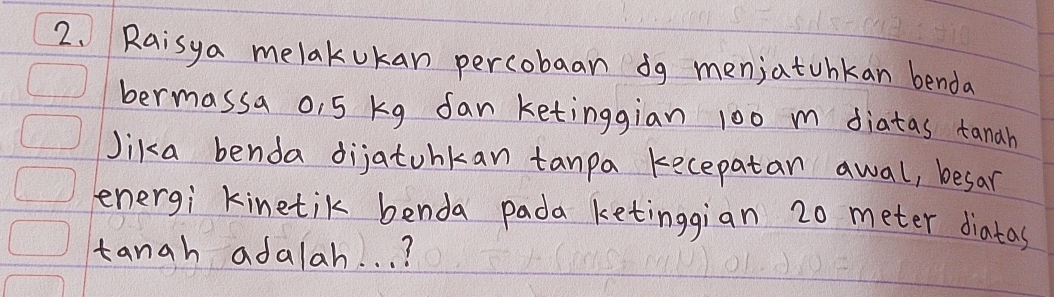 2. Raisya melakukan percobaan dg menjatuhkan benda
bermassa 0,5 kg dan ketinggian 100 m diatas tanah
Jika benda dijatuhkan tanpa kecepatan awal, besar
energi kinetik benda pada ketinggian 20 meter diatas
tanah adalah...?